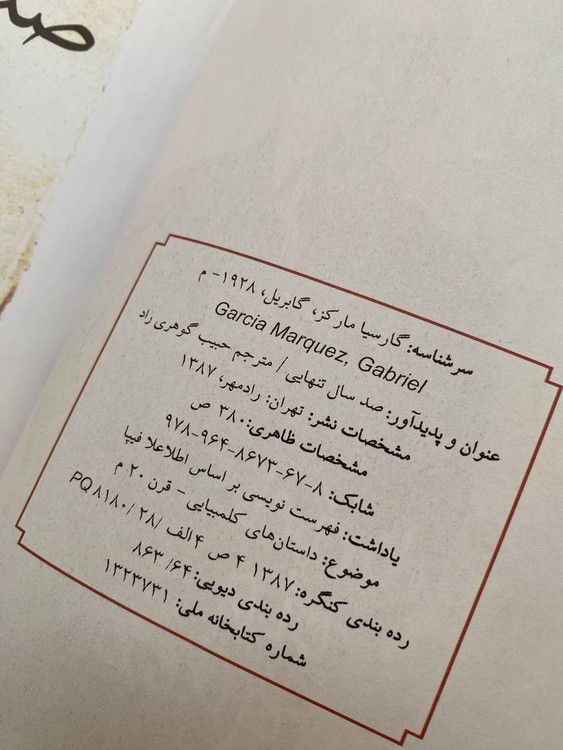 صد
سرشناسه: گارسیا مارکز، گابریل، ۱۹۲۸- م
Garcia Marquez, Gabriel
عنوان و پدیدآور: صد سال تنهایی / مترجم حبیب گوهری راد
مشخصات نشر: تهران: رادمهر، ۱۳۸۷
مشخصات ظاهری: ۳۸۰ ص
شابک: ۹۷۸-۹۶۴-۸۶۷۳-۶۷-۸
یاداشت: فهرست نویسی بر اساس اطلاعلا فیپا
موضوع: داستان‌های کلمبیایی - قرن ۲۰ م
رده بندی کنگره: ۱۳۸۷ ۴ ص ۴ الف /۲۸ /PQ۸۱۸۰
رده بندی دیویی: ۸۶۳ /۶۴
شماره کتابخانه ملی: ۱۳۲۳۷۳۱